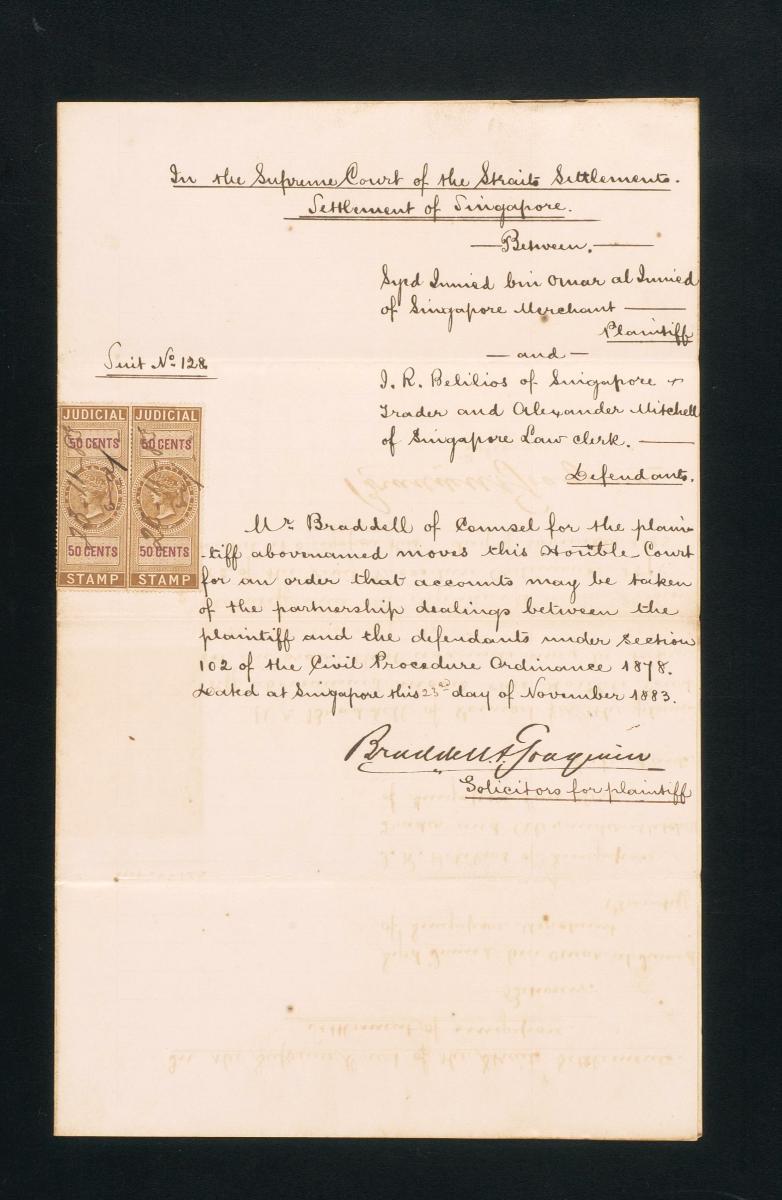 In the Supreme Court of the Straits Settlements.
Settlement of Singapore.
—Between.—
Syed Junied bin Omar al Junied
of Singapore Merchant —
Plaintiff
— and —
Suit No. 128
I. R. Belilios of Singapore
Trader and Alexander Mitchell
of Singapore Law clerk. —
Defendants.
JUDICIAL JUDICIAL
50 CENTS 50 CENTS
50 CENTS 50 CENTS
STAMP STAMP
Mr. Braddell of Counsel for the plain-
-tiff abovenamed moves this Honble Court
for an order that accounts may be taken
of the partnership dealings between the
plaintiff and the defendants under section
102 of the Civil Procedure Ordinance 1878.
Dated at Singapore this 23rd day of November 1883.
Braddell & Joaquim
Solicitors for plaintiff